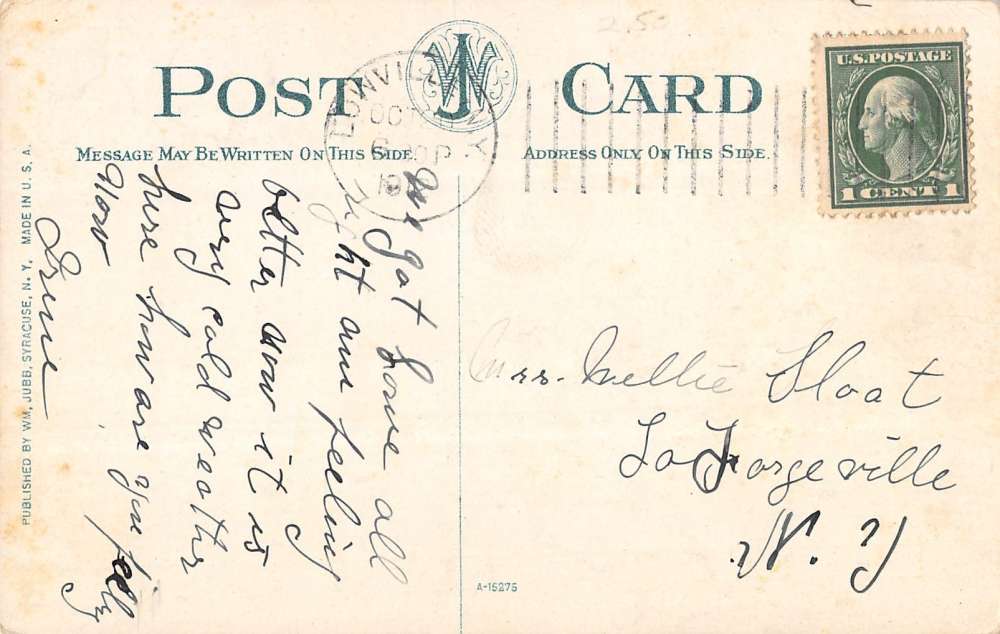 POST CARD
MESSAGE MAY BE WRITTEN ON THIS SIDE.
ADDRESS ONLY ON THIS SIDE.
LOWVILLE
OCT
N.Y.
U.S. POSTAGE
1 CENT 1
2.50
PUBLISHED BY WM. JUBB, SYRACUSE, N. Y. MADE IN U. S. A.
We got home all
right am feeling
better now it is
very cold weathr
here how are you feeling
Now
Irene
Mrs. Nellie Sloat
LaFargeville
N. Y
A-15275